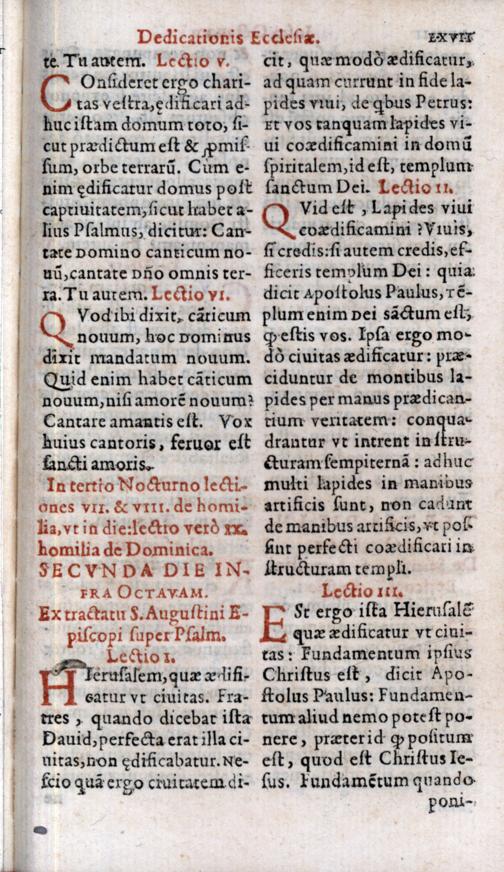 Dedicationis Ecclesiæ.
LXVII
te. Tu autem. Lectio v.
COnsideret ergo chari-
tas vestra, ędificari ad-
huc istam domum toto, si-
cut prædictum est & ꝓmis-
sum, orbe terrarũ. Cùm e-
nim ędificatur domus post
captiuitatem, sicut habet a-
lius Psalmus, dicitur: Can-
tate Domino canticum no-
uũ, cantate Dño omnis ter-
ra. Tu autem. Lectio VI.
QVod ibi dixit, cãticum
nouum, hoc Dominus
dixit mandatum nouum.
Quid enim habet cãticum
nouum, nisi amorẽ nouum?
Cantare amantis est. Vox
huius cantoris, feruor est
sancti amoris.
In tertio Nocturno lecti-
ones VII. & VIII. de homi-
lia, vt in die: lectio verò IX.
homilia de Dominica.
SECVNDA DIE IN-
FRA OCTAVAM.
Ex tractatu S. Augustini E-
piscopi super Psalm.
Lectio I.
HIerusalem, quæ ædifi-
catur vt ciuitas. Fra-
tres, quando dicebat ista
Dauid, perfecta erat illa ci-
uitas, non ędificabatur. Ne-
scio quã ergo ciuitatem di-
cit, quæ modò ædificatur,
ad quam currunt in fide la-
pides viui, de qbus Petrus:
Et vos tanquam lapides vi-
ui coædificamini in domũ
spiritalem, id est, templum
sanctum Dei. Lectio II.
QVid est, Lapides viui
coædificamini? Viuis,
si credis: si autem credis, ef-
ficeris templum Dei: quia
dicit Apostolus Paulus, Tẽ-
plum enim Dei sãctum est,
ꝙ estis vos. Ipsa ergo mo-
dò ciuitas ædificatur: præ-
ciduntur de montibus la-
pides per manus prædican-
tium veritatem: conqua-
drantur vt intrent in stru-
cturam sempiternã: adhuc
multi lapides in manibus
artificis sunt, non cadunt
de manibus artificis, vt pos-
sint perfecti coædificari in
structuram templi.
Lectio III.
ESt ergo ista Hierusalẽ
quæ ædificatur vt ciui-
tas: Fundamentum ipsius
Christus est, dicit Apo-
stolus Paulus: Fundamen-
tum aliud nemo potest po-
nere, præter id ꝙ positum
est, quod est Christus Ie-
sus. Fundamẽtum quando
poni-